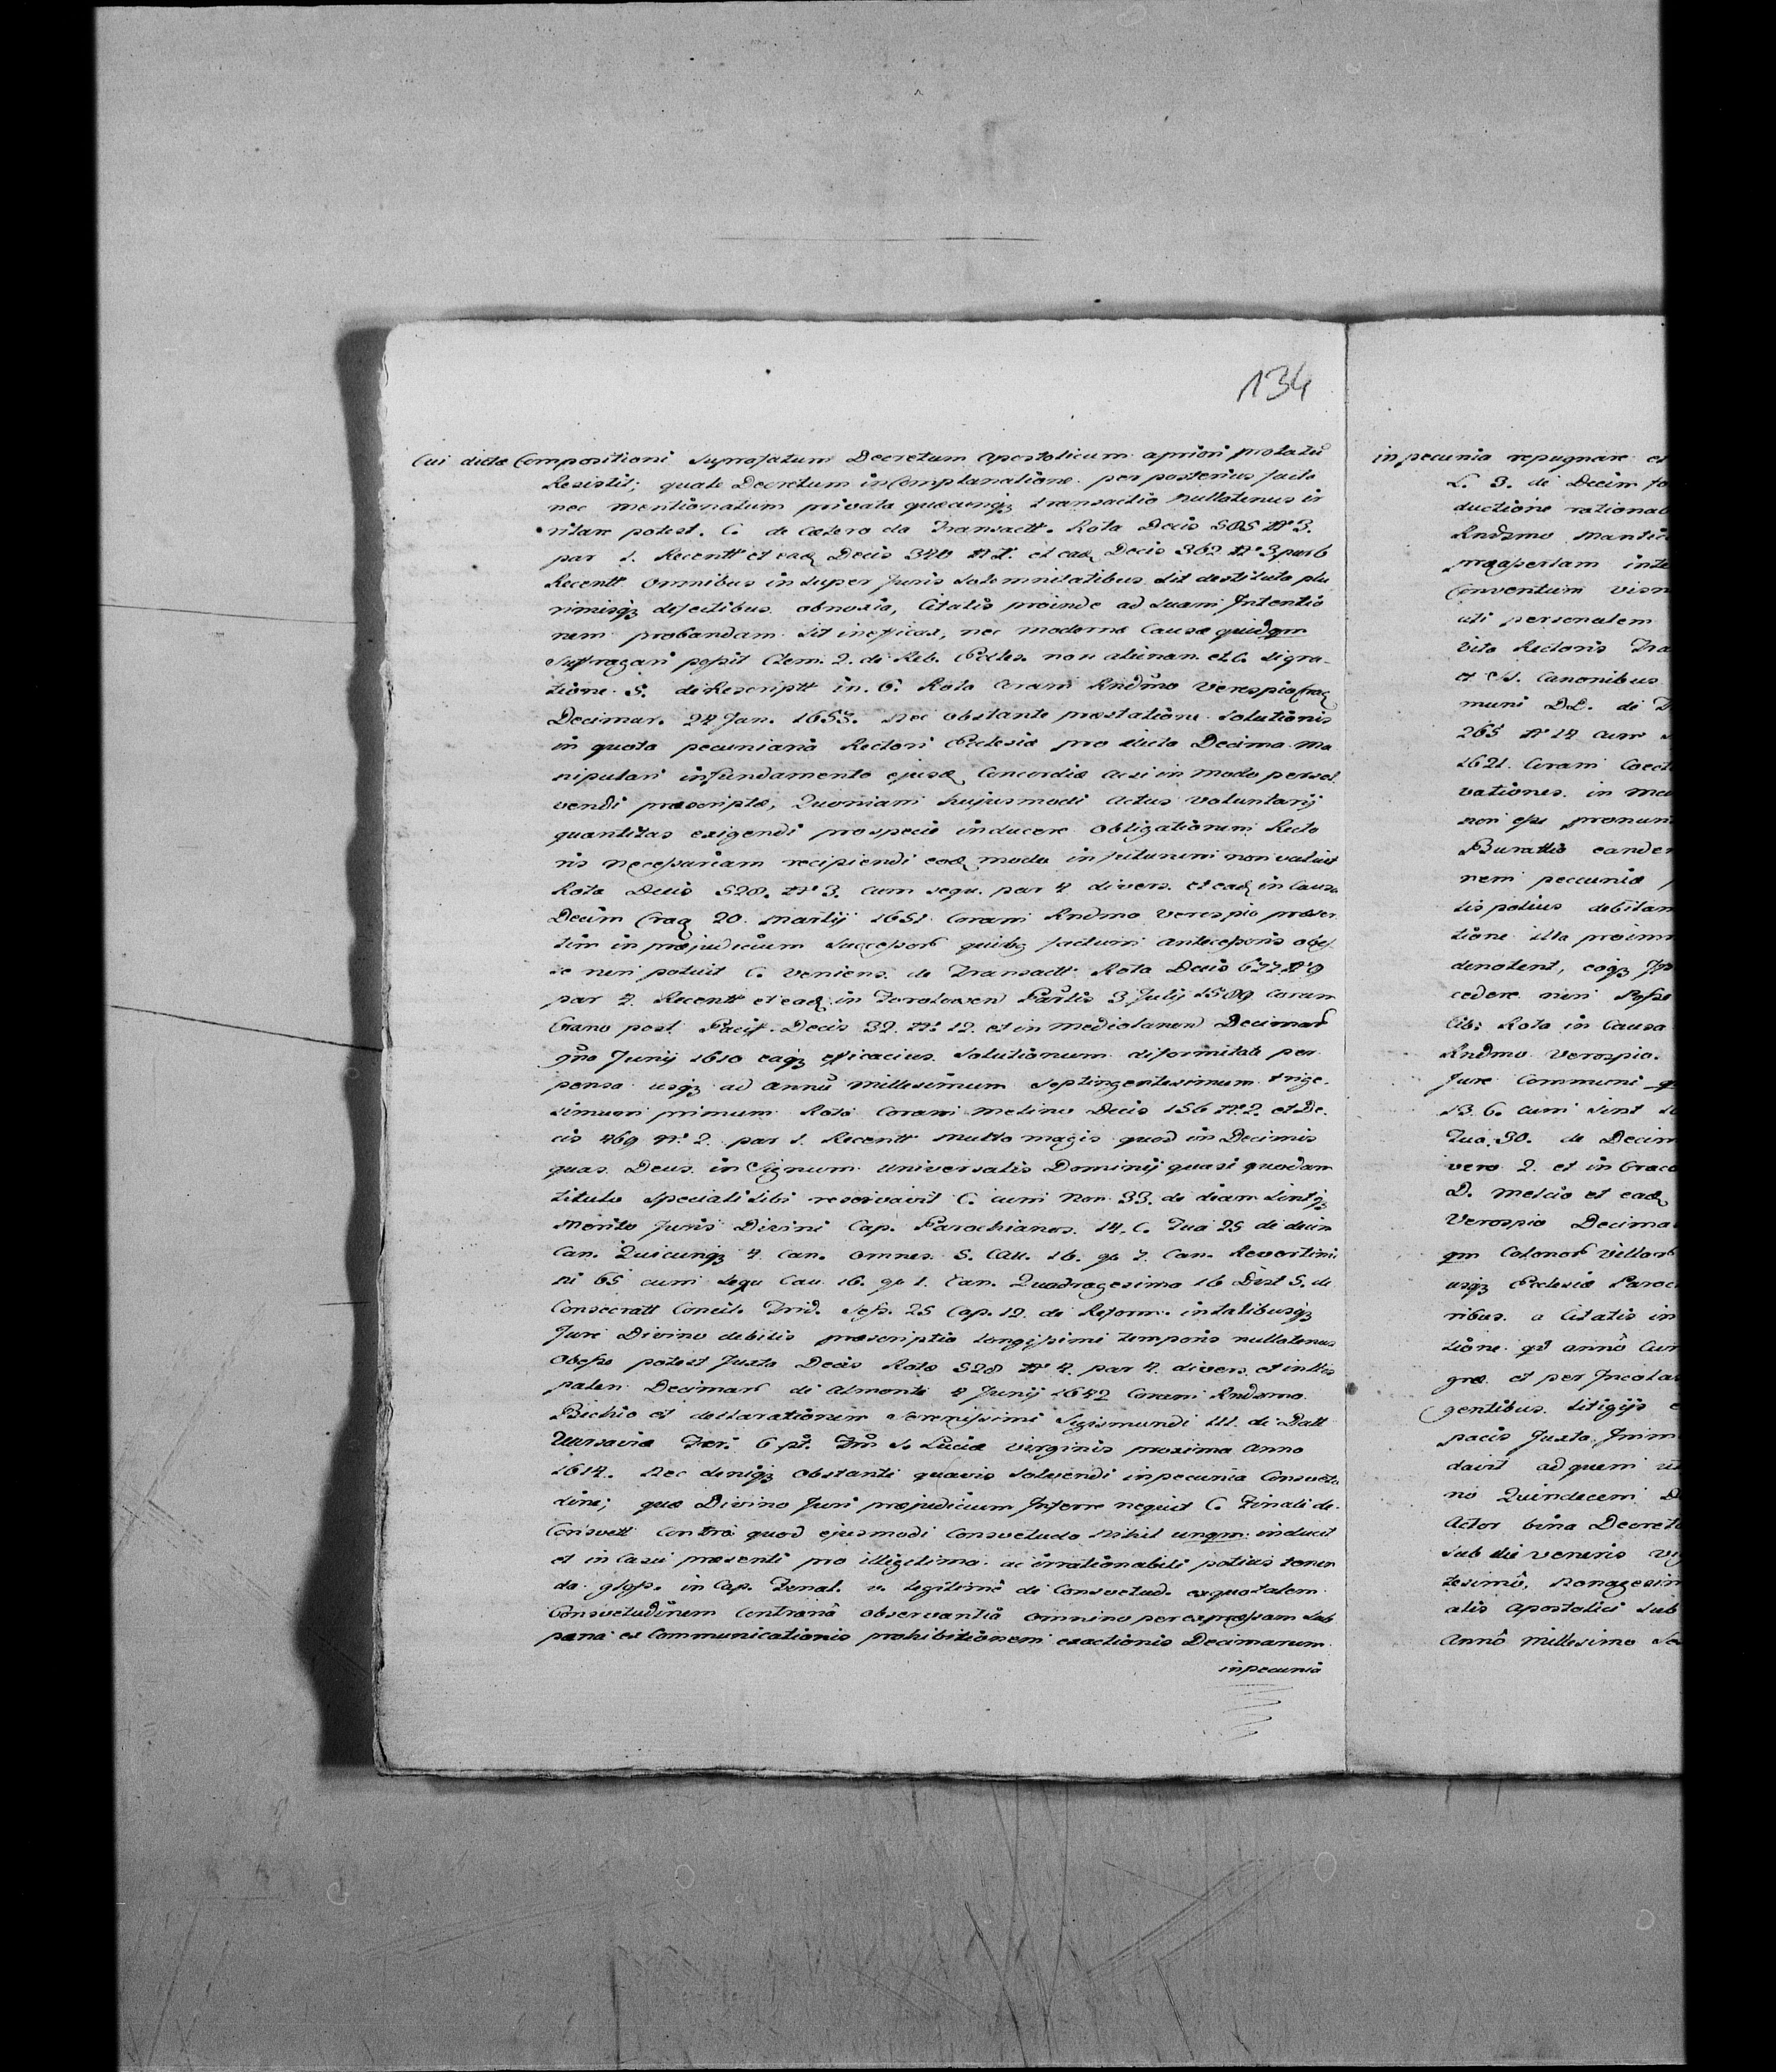 134
Cui dictæ Compositioni Suprafatum Decretum Apostolicum apriori prolatū
Resistit; quale Decretum in Complanatione per posterius facta
nec mentionatum privata quæcunqȝ transactio nullatenus ir
ritare potest. C. de Cætero de Transactt. Rota Decis 505 Nº 3.
par 1. Recentt et ead Decis 340 et ead Decis 362 Nº 3 par 6
Recentt omnibus in super Juris Solemnitatibus sit destituta plu
rimisqȝ defectibus obnoxia, Citatis proinde ad Suam Intentio
nem probandam sit inefficax, nec modernæ Causæ quidqm
Suffragari possit Clem. 2. de Reb. Eccles. non alienan. et C. Si gra-
tiose 5. de Rescriptt in 6. Rota Coram Rndmo Verospio Crac
Decimar. 24 Jan. 1653. Nec obstante præstatione Solutionis
in quota pecuniaria Rectori Ecclesiæ pro dicta Decima Ma
nipulari in fundamento ejusd Concordiæ ac si in modo persol
vendi præscriptæ, Quoniam hujusmodi actus Voluntarij
quantitas exigendi pro specie inducere Obligationem Recto
ris Necessariam recipiendi eod modo in futurum non valuit
Rota Decis 528. Nº 3. cum sequ. par 4 divers. et ead in Causa
Decim Crac 20 Martij 1651 Coram Rndmo Verospio præser
tim in præjudicium Successorū quibȝ factum Antecessoris obes
se non potuit C. Veniens. de Transactt Rota Decis 677 Nº 9
par 4. Recentt et ead in Partis 3 Julij 1589 Coram
post. Decis 32. Nº 12. et in Mediolanen Decimarū
Junij 1610 eaqȝ efficacius Solutionum diformitate per
pensa usqȝ ad annū Millesimum Septingentesimum trige-
simum primum Rota Coram Melino Decis 156 Nº 2. et De-
cis 469 Nº 2. par 1. Recentt Multo magis quod in Decimis
quas Deus in Signum Universalis Dominij quasi quodam
titulo Speciali Sibi reservavit C. cum non 33. de deam Sintqȝ
Merito Juris Divini Cap. Parochianos 14. C. Tua 25 de decim
Can. Quicunqȝ 4 Can. omnes 5. Cau. 16. qu 7 Can. Revertimi
ni 65 cum sequ Cau. 16. qu 1. Can. Quadragesima 16 Dist 5. de
Consecratt Concil. Trid. Sess. 25 Cap. 12. de Reform. in talibusqȝ
Jure Divino debitis præscriptio longissimi temporis nullatenus
Obesse potest Juxta Decis Rotæ 528 Nº 4. par 4. divers. et in His
palen Decimarū de Almonte 4 Junij 1642 Coram Rndsmo
Bichio et declarationem Serenissimi Sigismundi III. de Datt
Varsaviæ Fer. 6 pt. Fm S. Luciæ Virginis proxima Anno
1614. Nec deniqȝ Obstante quavis Solvendi in pecunia Consvetu
dine; quæ Divino Juri præjudicium Inferre nequit C. Finali de
Consvett Contra quod ejusmodi Consvetudo Nihil unqm inducit
et in Casu præsenti pro illigitima ac irrationabili potius tenen
da gloss. in Cap. Final. v. legitime de Consvetud. ex quo talem
Consvetudinem Contrariâ observantiâ omnino per expressam Sub
pæna ex Communicationis prohibitionem exactionis Decimarum
in pecunia
in pecunia repugnare et
L. 3. de Decim
ductione rational
Rndsmo
præfertam inte
Conventum
uti personalem
vita Rectoris Tra
et SS. Canonibus
muni DD. de
265 Nº 14 cum
1621. Coram
vationes in
non esse pronun
Buratto eande
nem peccuniæ
tis potius debitam
tione illa proinn
denotent, eoqȝ
cedere non Posse
Rota in Causa
Rndmo Verospio.
Jure Communi
13. C. cum sint
Tua. 30. de Decim
vero 2. et in Craco
D. Melcio et ead
Verospio Decima
qm Colonorū Villarū
usqȝ Ecclesiæ Paroc
ribus a Citatis in
tione qd annō
græ et per Incolas
gentibus litigijs
pacis Juxta
davit ad quem
no Quindecem
Actor bina Decreta
sub die Veneris
tesimō, Nonagesim
alis Apostolici sub
Annō Millesimo Se